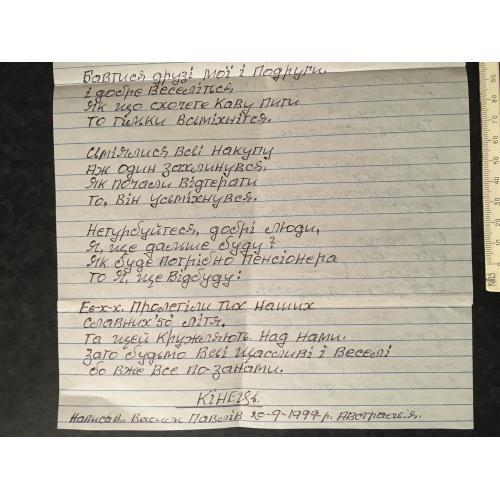 Бавтися друзі мої і подруги.
і добре веселіться,
Як що схочете каву пити
то тільки всміхнітся.
Сміялися всі накупу
Аж один захлинувся.
Як почали відтерати
то, він усьміхнувся.
Нетурбуйтеся, добрі люди,
Я, ще дальше буду?
Як буде потрібно пенсіонера
то Я, ще відбуду:
Ех-х-х. Пролетіли тих наших
славних "50" літя.
Та щей кружляють над нами.
Зато будьмо всі щасливі і веселі
бо вже все по-занами.
Кінець.
Написав. Василь Павлів 20-9-1999-р. Австралія.
50
60
70
80
90